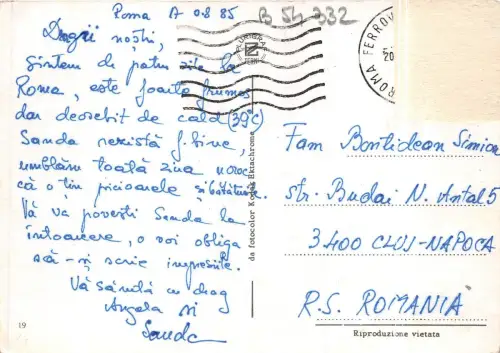 Roma 08 85
B 54 332
Dragii noștri,
Sîntem de patru zile la
Roma, este foarte frumos
dar deosebit de cald (39°C)
Sanda rezistă f. bine,
umblăm toată ziua noroc
că o țin picioarele
Vă va povesti Sanda la
întoarcere, o voi obliga
să-și scrie impresiile.
Vă sărută cu drag
Angela și
Sanda
19
da fotocolor Kodak Ektachrome
ROMA FERROV
20
Fam Bontidean Simion
str. Budai N. Antal 5
3400 CLUJ-NAPOCA
R.S. ROMANIA
Riproduzione vietata